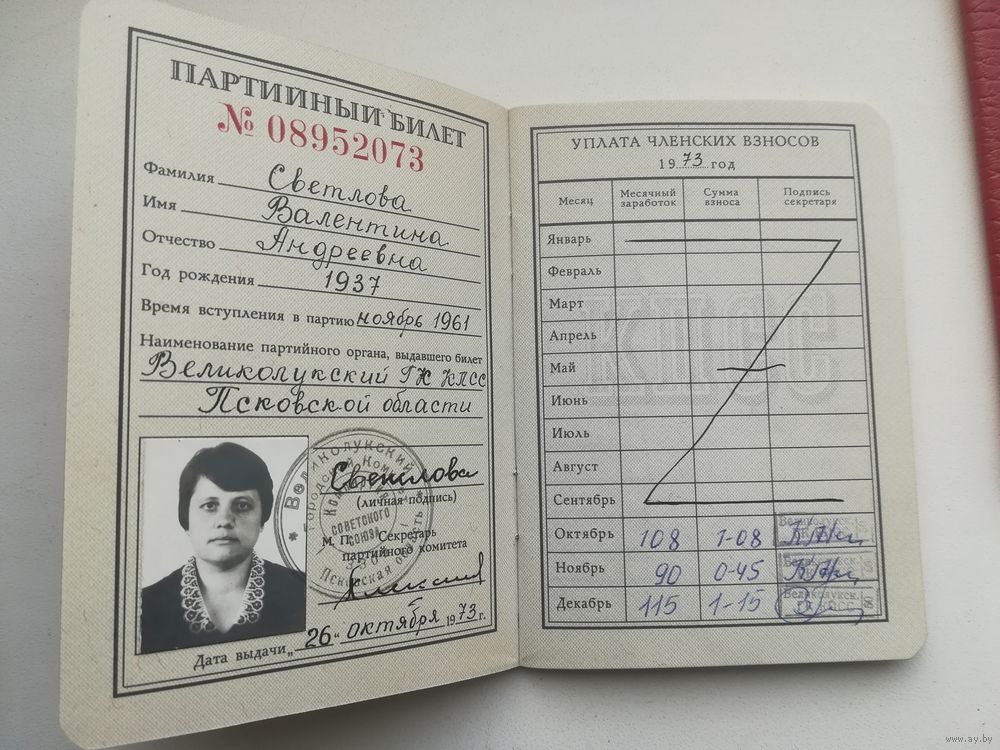 ПАРТИЙНЫЙ БИЛЕТ
№ 08952073
Фамилия Светлова
Имя Валентина
Отчество Андреевна
Год рождения 1937
Время вступления в партию ноябрь 1961
Наименование партийного органа, выдавшего билет
Великолукский ГК КПСС
Псковской области
Светлова
(личная подпись)
М. П. Секретарь
партийного комитета
Дата выдачи „26“ октября 1973 г.
ВЕЛИКОЛУКСКИЙ
СОВЕТСКОГО
СОЮЗА
УПЛАТА ЧЛЕНСКИХ ВЗНОСОВ
1973 год
Месяц Месячный заработок Сумма взноса Подпись секретаря
Январь
Февраль
Март
Апрель
Май
Июнь
Июль
Август
Сентябрь
Октябрь 108 1-08
Ноябрь 90 0-45
Декабрь 115 1-15
Великолукск.
ГК КПСС
www.ay.by